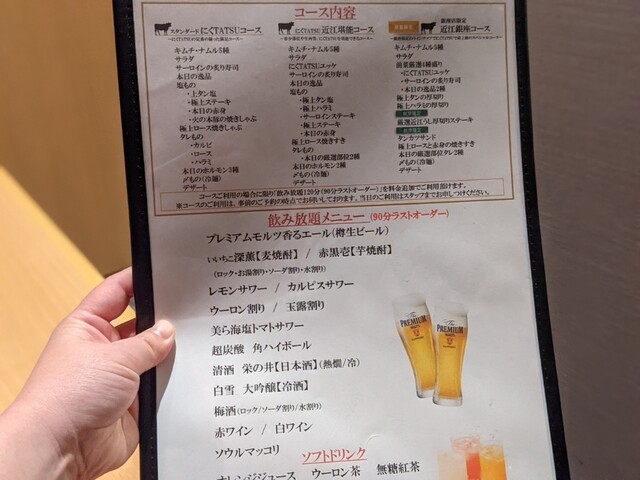 コース内容
スタンダード にくTATSUコース
にくTATSU 近江堪能コース
銀座店限定 近江銀座コース
キムチ・ナムル5種
サラダ
サーロインの炙り寿司
本日の逸品
塩もの
・上タン塩
・極上ステーキ
・本日の赤身
・火の本豚の焼きしゃぶ
極上ロース焼きしゃぶ
タレもの
・カルビ
・ロース
・ハラミ
本日のホルモン3種
〆もの(冷麺)
デザート
キムチ・ナムル5種
サラダ
にくTATSUユッケ
サーロインの炙り寿司
本日の逸品
塩もの
・極上タン塩
・極上ハラミ
・サーロインステーキ
・極上ステーキ
・本日の赤身
極上ロース焼きすき
タレもの
・本日の厳選部位2種
本日のホルモン2種
〆もの(冷麺)
デザート
キムチ・ナムル5種
サラダ
前菜厳選4種盛り
・にくTATSUユッケ
・サーロインの炙り寿司
・本日の逸品2種
極上タンの厚切り
極上ハラミの厚切り
厳選近江うし厚切りステーキ
タンカツサンド
極上ロースと赤身の焼きすき
本日の厳選部位タレ2種
〆もの(冷麺)
デザート
コースご利用の場合に限り「飲み放題」120分(90分ラストオーダー)」を料金追加でご利用頂けます。
※コースのご利用は、事前のご予約の時点でお伺いしております。当日のご利用はスタッフまでお申しつけください。
飲み放題メニュー(90分ラストオーダー)
プレミアムモルツ香るエール(樽生ビール)
いいちこ深薫【麦焼酎】 / 赤黒壱【芋焼酎】
(ロック・お湯割り・ソーダ割り・水割り)
レモンサワー / カルピスサワー
ウーロン割り / 玉露割り
美ら海塩トマトサワー
超炭酸 角ハイボール
清酒 栄の井【日本酒】(熱燗/冷)
白雪 大吟醸【冷酒】
梅酒(ロック/ソーダ割り/水割り)
赤ワイン / 白ワイン
ソウルマッコリ
The PREMIUM MALT'S
The PREMIUM MALT'S
ソフトドリンク
オレンジジュース ウーロン茶 無糖紅茶